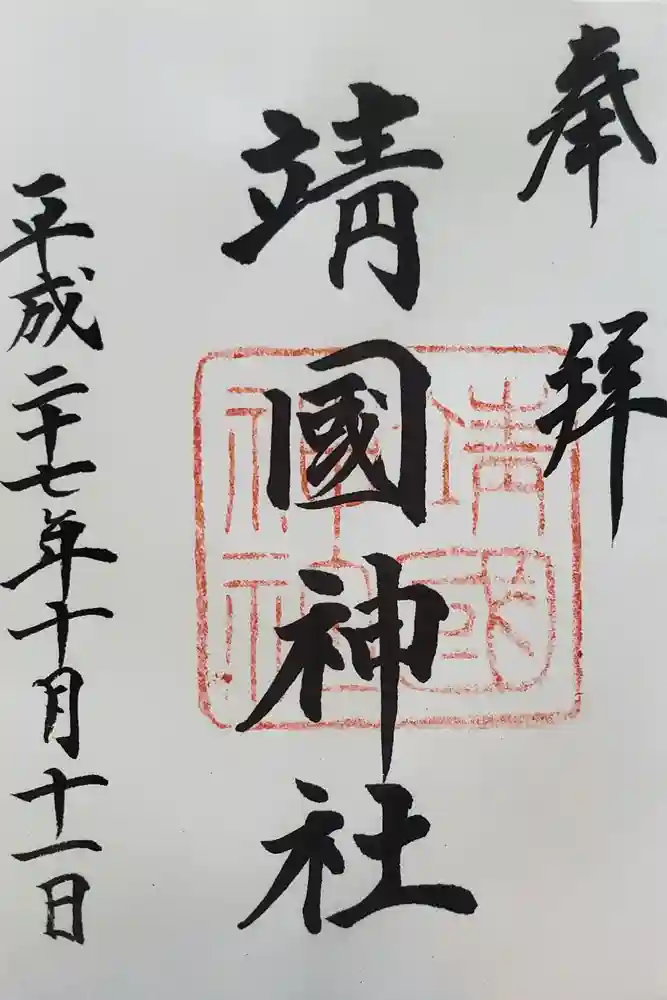 奉拝
靖國神社
靖國神社
平成二十七年十月十一日